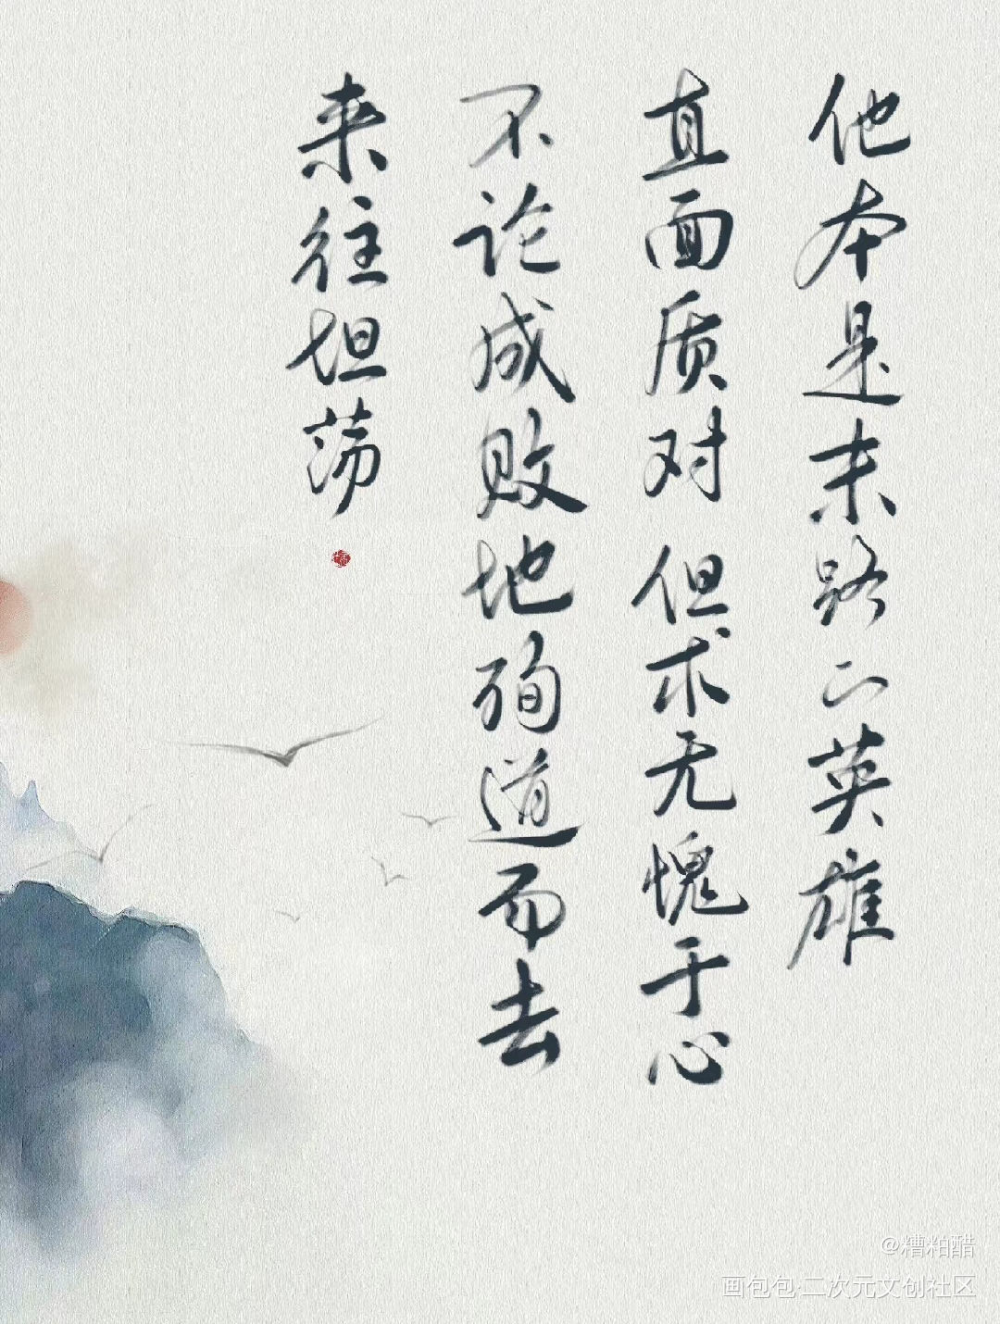 他本是末路的英雄
直面质对 但求无愧于心
不论成败地殉道而去
来往坦荡
@糟粕醋
画包包·二次元文创社区